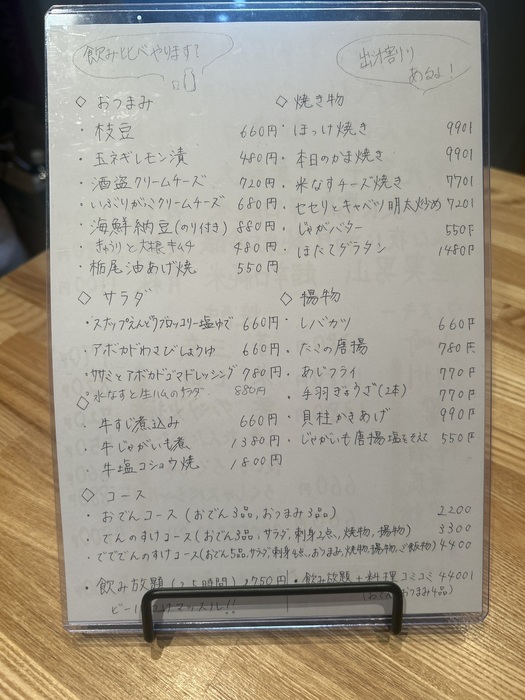 飲み比べやります?
出汁割り
あるよ!
◇ おつまみ
・枝豆 660円
・玉ネギレモン漬 480円
・酒盗クリームチーズ 720円
・いぶりがっこクリームチーズ 680円
・海鮮納豆(のり付き) 880円
・きゅうりと大根キムチ 480円
・栃尾油あげ焼 550円
◇ 焼き物
・ほっけ焼き 990
・本日のかま焼き 990
・米なすチーズ焼き 770
・セセリとキャベツ明太炒め 720
・じゃがバター 550
・ほたてグラタン 1480
◇ サラダ
・スナップえんどうブロッコリー塩ゆで 660円
・アボカドわさびしょうゆ 660円
・ササミとアボカドゴマドレッシング 780円
・水なすと生ハムのサラダ 880円
◇
・牛すじ煮込み 660円
・牛じゃがいも煮 1380円
・牛塩コショウ焼 1800円
◇ 揚物
・レバカツ 660
・たこの唐揚 780
・あじフライ 770
・手羽ぎょうざ(2本) 770
・貝柱かきあげ 990
・じゃがいも唐揚塩をそえて 550
◇ コース
・おでんコース (おでん3品,おつまみ3品) 2200
・でんのすけコース(おでん3品,サラダ,刺身2点,焼物,揚物) 3300
・でででんのすけコース(おでん5品,サラダ,刺身4点,おつまみ,焼物,揚物,ご飯物) 4400
・飲み放題 1750円
・飲み放題+料理コミコミ 4400
おつまみ4品)